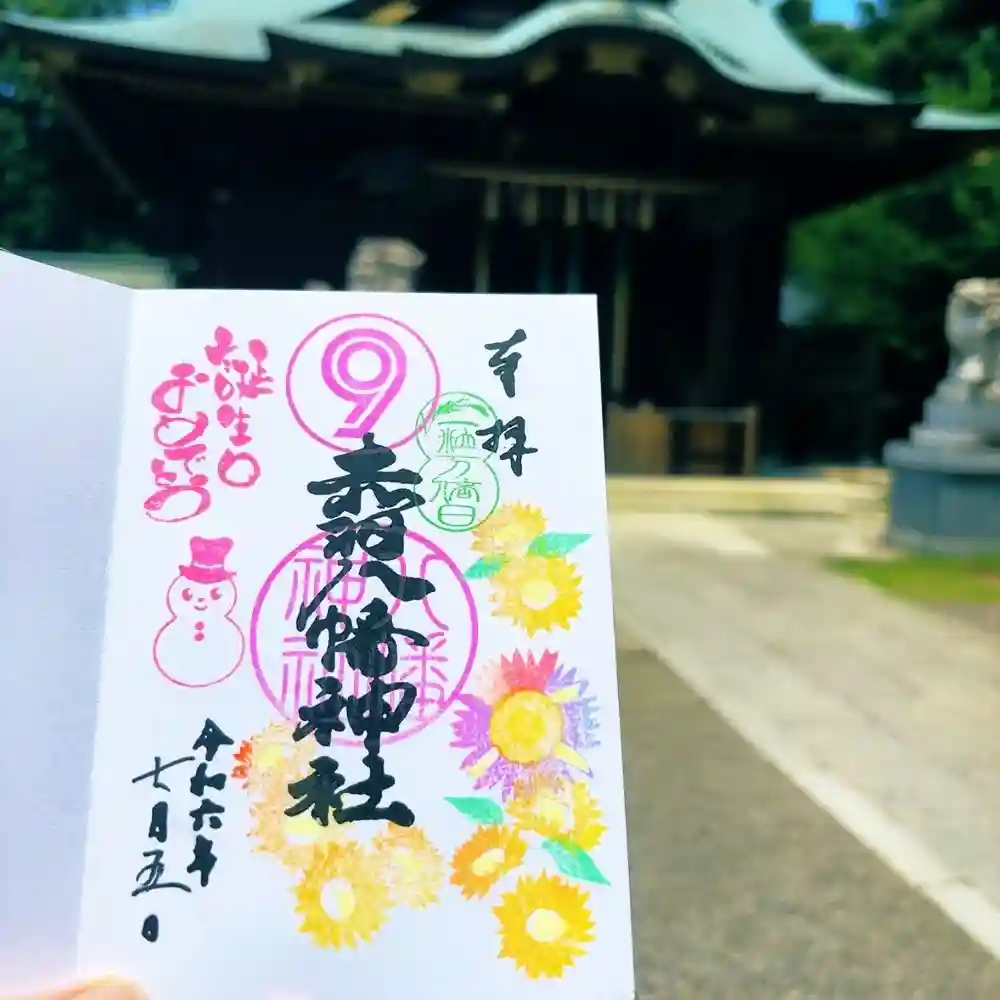 奉拝
一粒万倍日
⑨
赤羽八幡神社
八幡
神社
誕生日
おめでとう
令和六年
七月五日